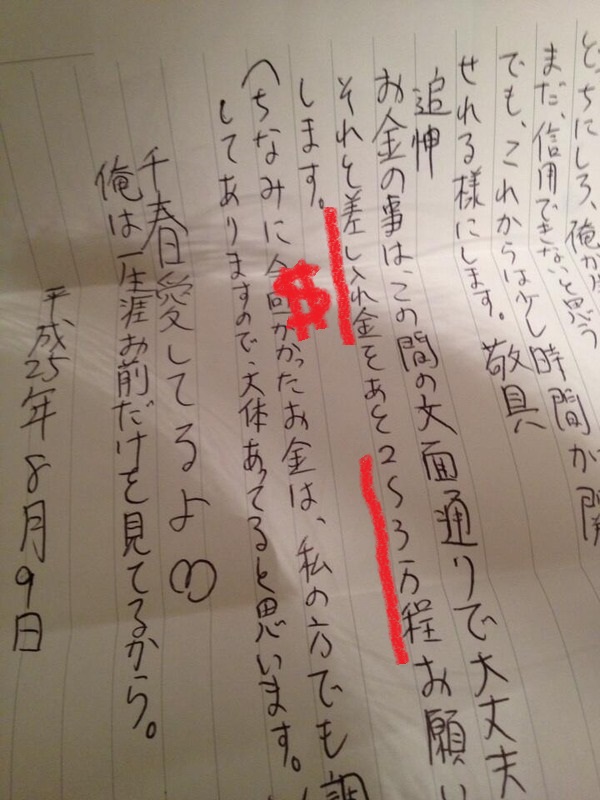 どっちにしろ、俺が
まだ、信用できないと思う
でも、これからは少し時間が開
せれる様にします。 敬具
追伸
お金の事は、この間の文面通りで大丈夫
それと差し入れ金をあと2~3万程お願い
します。
(ちなみに今回かかったお金は、私の方でも調
してありますので、大体あってると思います。)
千春愛してるよ♡
俺は一生涯お前だけを見てるから。
平成25年8月9日